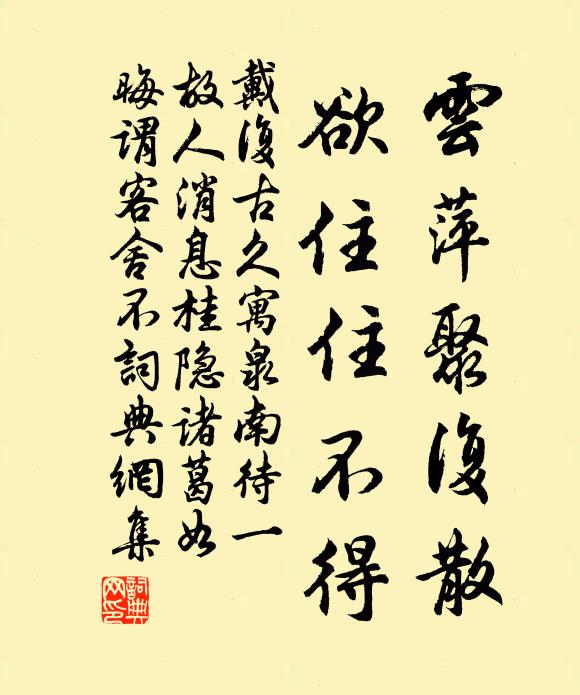 雲萍聚復散
欲住住不得
戴復古久寓泉南待一
故人消息桂隐诸葛如
晦谓客舍不詞典網集
詞典
网印